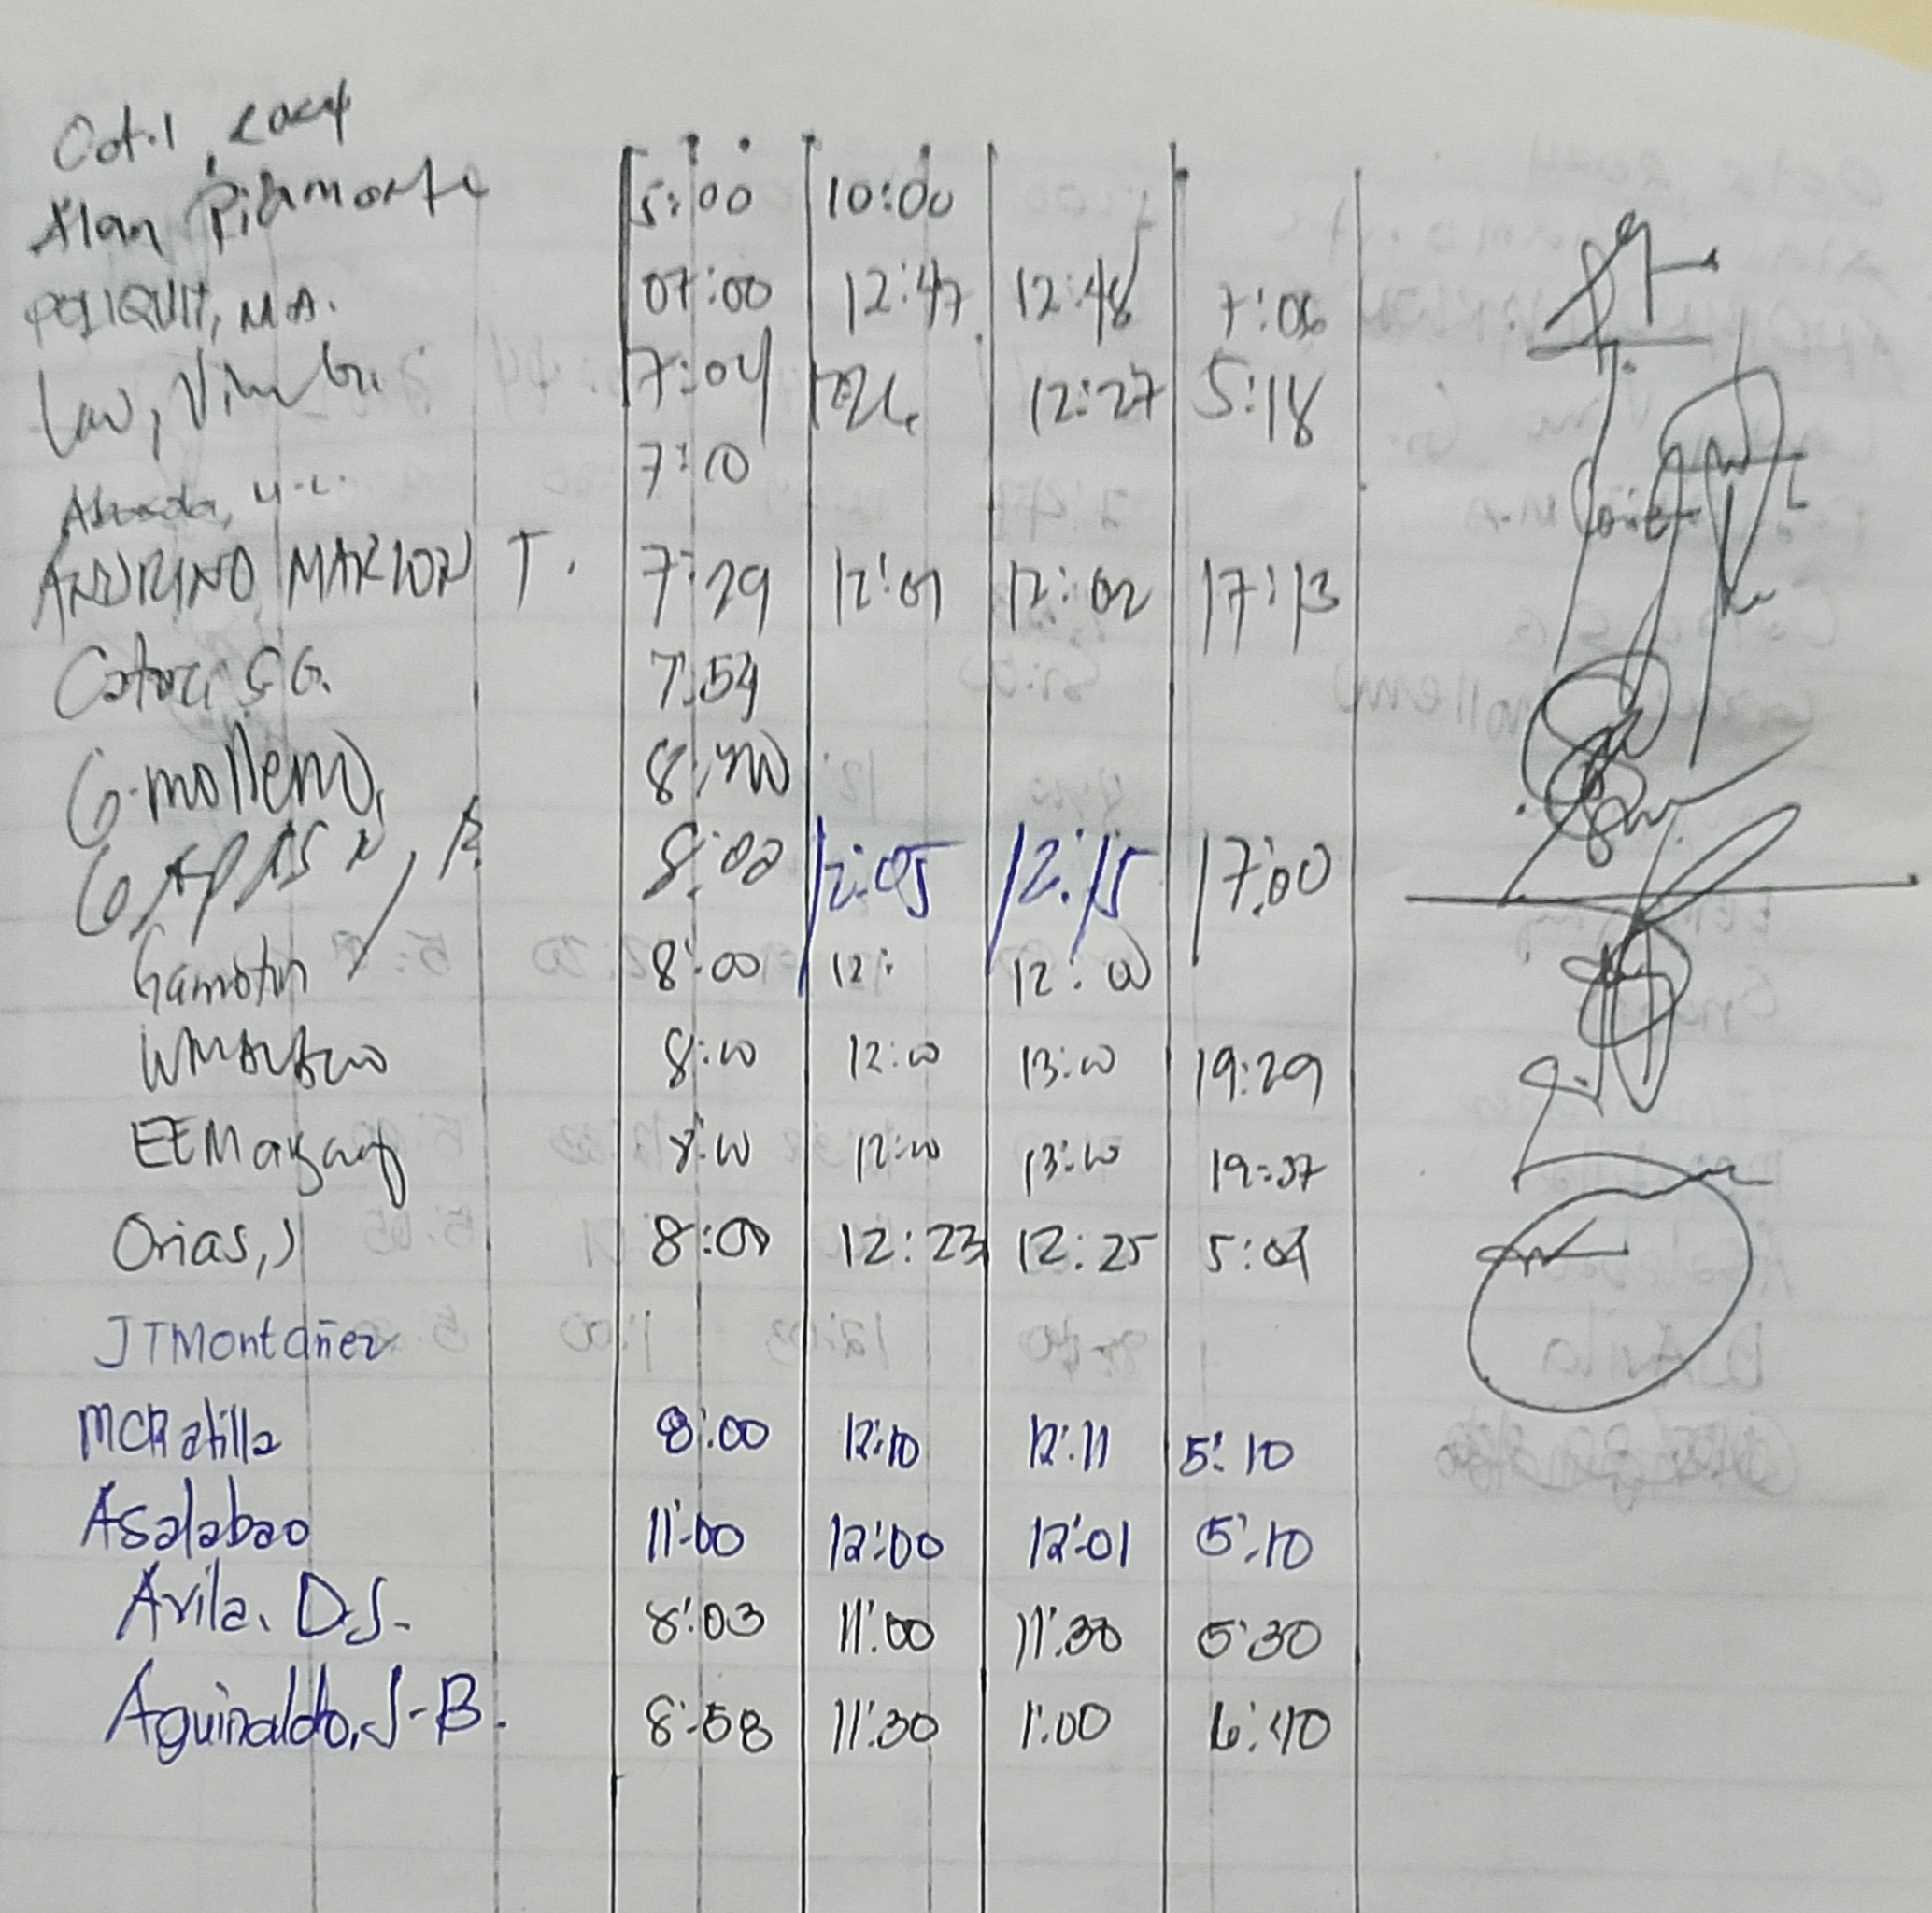 Oct. 1, 2024
Alan Piamonte 5:00 10:00
POLIQUIT, M.A. 07:00 12:47 12:48 7:06
Law, Vim 7:04 12:27 5:18
7:10
ANDRINO MARLON T. 7:29 12:01 12:02 17:13
S.G. 7:54
G. molleno, 8:00
8:02 12:05 12:15 17:00
Gamotin 8:00 12: 12:00
8:00 12:00 13:00 19:29
EEMaysang 8:00 12:00 13:00 19:37
Orias, J 8:00 12:23 12:25 5:04
JTMontañez
MCRatilla 8:00 12:10 12:11 5:10
Asalabao 11:00 12:00 12:01 5:10
Avila, D.S. 8:03 11:00 11:30 5:30
Aguinaldo, J-B. 8:58 11:30 1:00 6:40